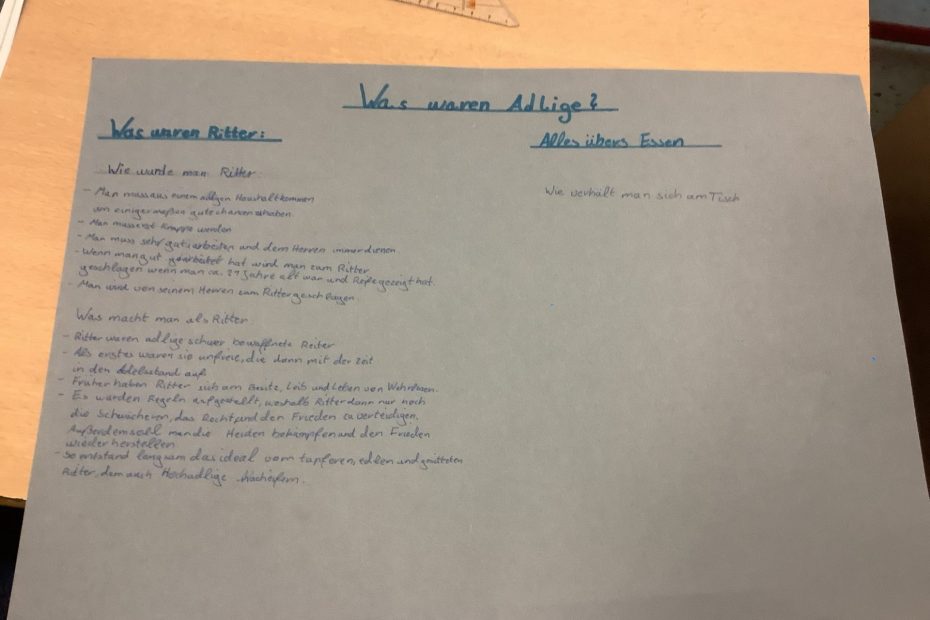 Was waren Adlige?
Was waren Ritter:
Wie wurde man Ritter:
- Man muss aus einem adligen Haushalt kommen
um einigermaßen gute chancen zu haben
- Man muss erst Knappe werden
- Man muss sehr gut arbeiten und dem Herren immer dienen
- Wenn man gut gearbeitet hat wird man zum Ritter
geschlagen wenn man ca. 21 Jahre alt war und Reife gezeigt hat.
- Man wird von seinem Herren zum Ritter geschlagen
Was macht man als Ritter
- Ritter waren adlige schwer bewaffnete Reiter
- Als erstes waren sie unfreie, die dann mit der Zeit
in den Adelsstand auf
- Früher haben Ritter sich am Besitz, Leib und Leben von Wehrlosen.
- Es wurden Regeln aufgestellt, weshalb Ritter dann nur noch
die Schwächeren, das Recht und den Frieden zu verteidigen.
Außerdem soll man die Heiden bekämpfen und den Frieden
wieder herstellen.
- So entstand langsam das ideal vom tapferen, edlen und
Ritter, dem auch Hochadlige nacheifern.
Alles übers Essen
Wie verhält man sich am Tisch